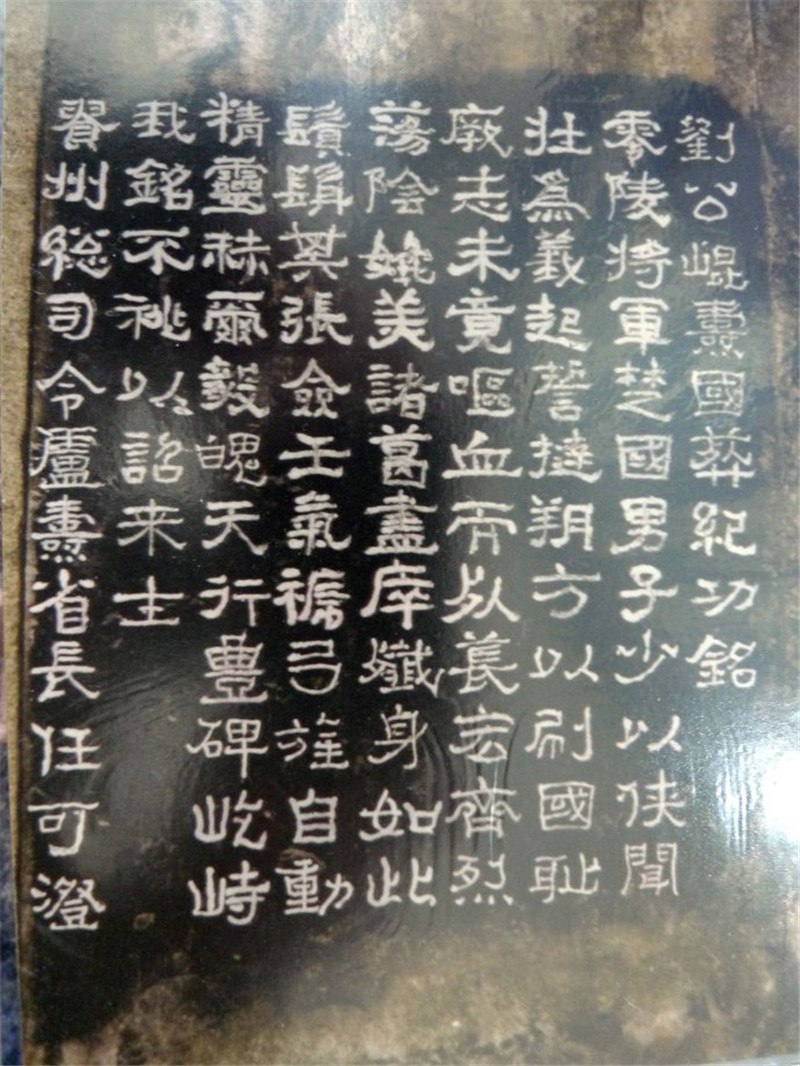 劉公崐燾國葬紀功銘
零陵将軍楚國男子少以侠聞
壮為義起誓撻朔方以刷國恥
厥志未竟嘔血而萇宏齊烈
蕩陰媲美諸葛盡瘁殲身如此
鬚髯其張僉壬氣褫弓旌自動
精靈赫爾毅魄天行豊碑屹峙
我銘不祧以詔来士
貴州総司令盧燾省長任可澄